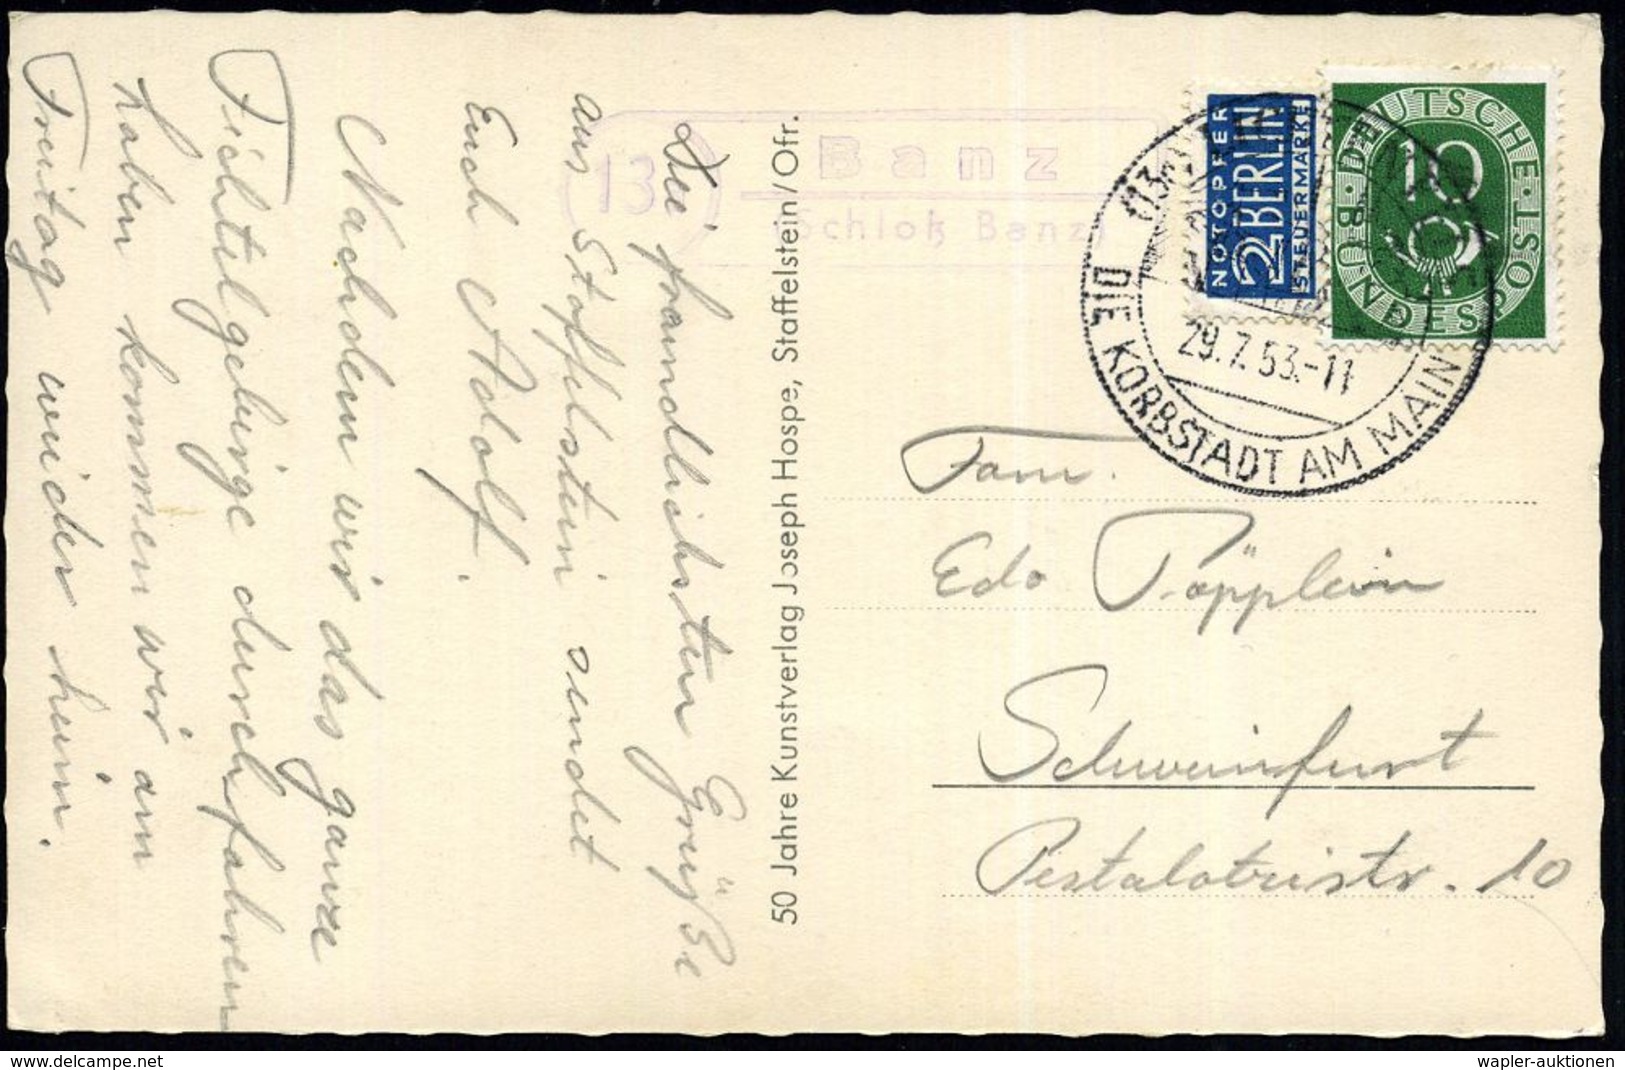 Die freundlichsten Grüße
aus Staffelstein sendet
Euch Adolf.
Nachdem wir das ganze
Fichtelgebirge durchfahren
haben kommen wir am
Freitag wieder heim.
50 Jahre Kunstverlag Joseph Hospe, Staffelstein/Ofr.
13
Banz
(Schloß Banz)
NOTOPFER
2 BERLIN
STEUERMARKE
DEUTSCHE · BUNDESPOST
10
(13a)
29.7.53.-11
DIE KORBSTADT AM MAIN
Fam.
Edo Pöpplein
Schweinfurt
Pestalozzistr. 10
delcampe.net
wapler-auktionen